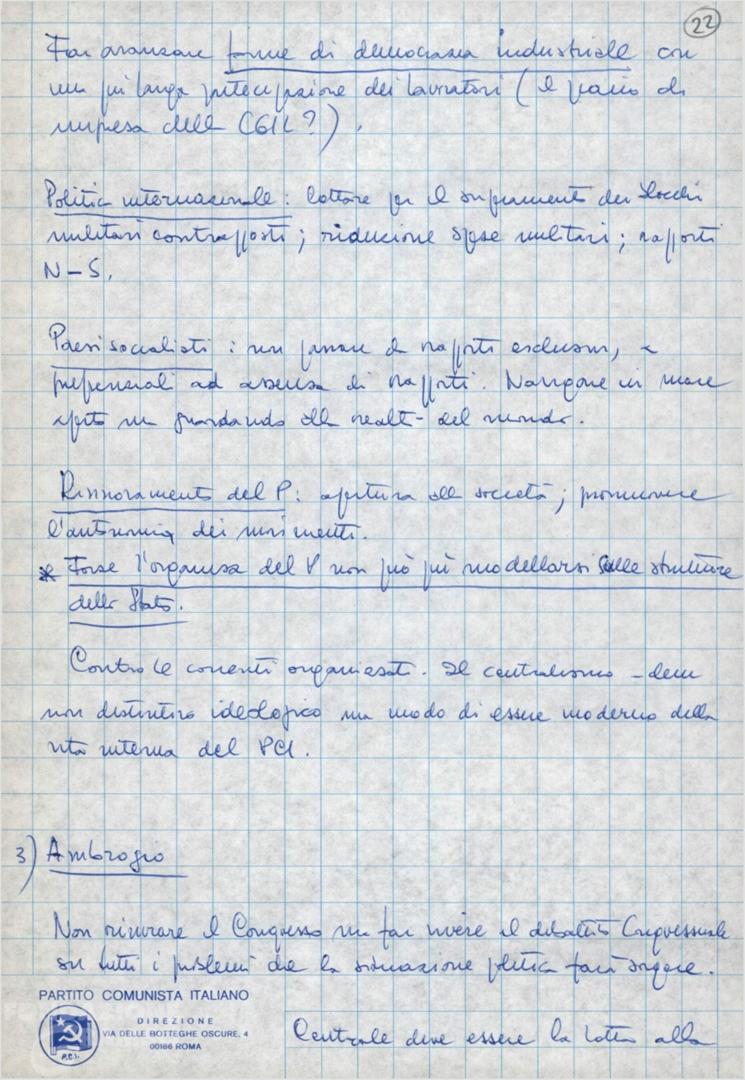 22
Far avanzare forme di democrazia industriale con
una più larga partecipazione dei lavoratori (il piano di
impresa della CGIL?).
Politica internazionale: lottare per il superamento dei blocchi
militari contrapposti; riduzione spese militari; rapporti
N-S.
Paesi socialisti: non passare da rapporti esclusivi, o
preferenziali ad assenza di rapporti. Navigare in mare
aperto ma guardando alla realtà del mondo.
Rinnovamento del P: apertura alla società; promuovere
l'autonomia dei movimenti.
* Forse l'organizza del P non può più modellarsi sulle strutture
dello Stato.
Contro le correnti organizzate. Il centralismo-dem
non distintivo ideologico ma modo di essere moderno della
vita interna del PCI.
3) Ambrogio
Non rinviare il Congresso ma far vivere il dibattito Congressuale
su tutti i problemi che la situazione politica farà sorgere.
Centrale deve essere la lotta alla
PARTITO COMUNISTA ITALIANO
DIREZIONE
VIA DELLE BOTTEGHE OSCURE, 4
00186 ROMA
P.C.I.